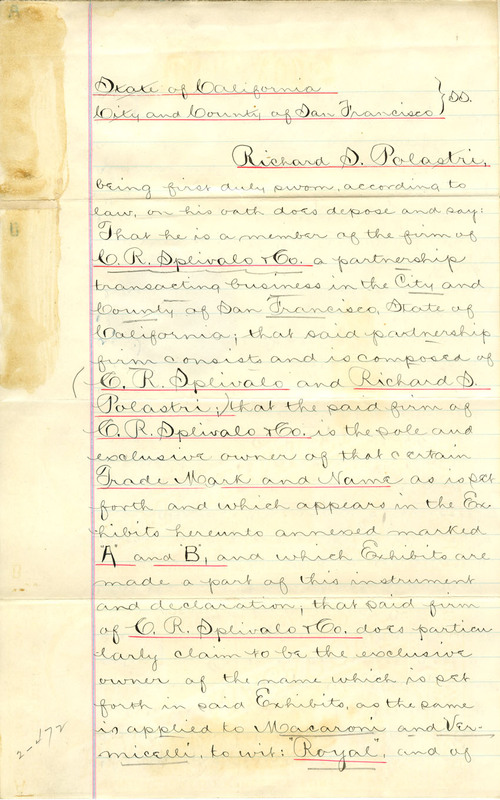 State of California
City and County of San Francisco } ss.
Richard S. Palastri,
being first duly sworn, according to
law, on his oath does depose and say:
That he is a member of the firm of
C. R. Splivalo & Co. a partnership
transacting business in the City and
County of San Francisco, State of
California; that said partnership
firm consists and is composed of
(C. R. Splivalo and Richard S.
Palastri;) that the said firm of
C. R. Splivalo & Co. is the sole and
exclusive owner of that certain
Trade Mark and Name as is set
forth and which appears in the Ex-
hibits hereunto annexed marked
"A" and "B", and which Exhibits are
made a part of this instrument
and declaration; that said firm
of C. R. Splivalo & Co. does particu
larly claim to be the exclusive
owner of the name which is set
forth in said Exhibits, as the same
is applied to Macaroni and Ver-
micelli, to wit: "Royal", and of